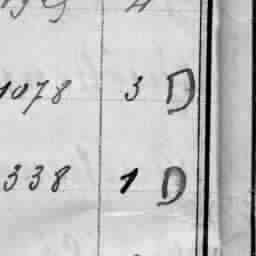 1078 3 D
338 1 D